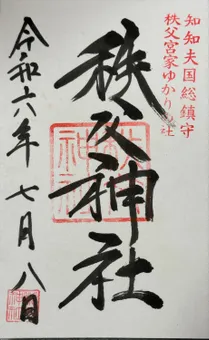 知知夫国総鎮守
秩父宮家ゆかりの社
秩父神社
令和六年七月八日